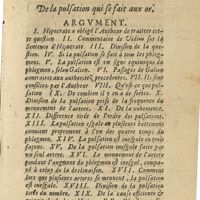 De la pulsation qui se fait aux os.
ARGVMENT.
I. Hipocrate a obligé l'Autheur de traitter cet-
te question II. Commentaire de Vidius sur la
Sentence d'Hipocrate III. Division de la que-
stion. IV. Si la pulsation se fait à tous les phleg-
mons. V. La pulsation est un signe equivoque du
phlegmon, selon Galien. VI. Passages de Galien
contraires aux authoritéz precedentes. VII. Ils sont
expliquez par l'Autheur. VIII. Qu'est-ce que pul-
sation IX. De combien il y en a de sortes. X.
Division de la pulsation prise de la grandeur du
mouvement de l'artere. XI. De la vehemence.
XII. Differente tirée de l'ordre des pulsations.
XIII. La pulsation égale en plusieurs battemens
convient proprement à l'un des quatre temps du
phlegmon. XIV. La pulsation est inegale tous les
temps. XV. La pulsation inégale faite par
un seul artere. XVI. Le mouvement de l'artere
pendant l'augment du phlegmon est inegal, compa-
ré à celuy de la declinaison. XVII. Comment
lors que plusieurs arteres se meuvent, la pulsation
est inegale. XVIII. Division de la pulsation
tirée du nombre. XIX. De la cause efficiente &